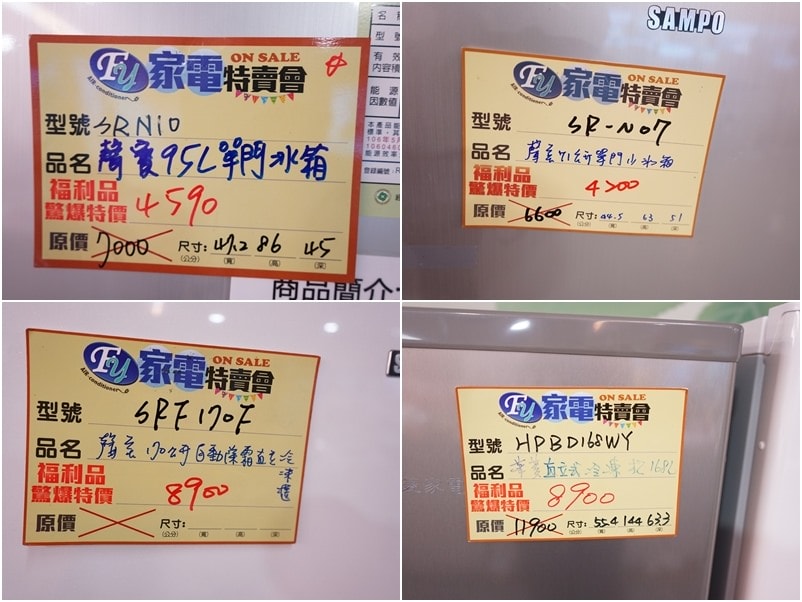 FY
Air conditioner
家電特賣會
ON SALE
型號 SRN10
品名 聲寶95L單門冰箱
福利品
驚爆特價 4590
原價 7000 尺寸: 47.2 86 45
(公分) (寬) (高) (深)
商品簡介
SAMPO
FY
Air conditioner
家電特賣會
ON SALE
型號 SR-N07
品名 聲寶71公升單門小冰箱
福利品
驚爆特價 4200
原價 6600 尺寸: 44.5 63 51
(公分) (寬) (高) (深)
FY
Air conditioner
家電特賣會
ON SALE
型號 SRF170F
品名 聲寶170公升自動除霜直立冷凍櫃
福利品
驚爆特價 8900
原價 尺寸:
(公分) (寬) (高) (深)
FY
Air conditioner
家電特賣會
ON SALE
型號 HPBD168WY
品名 直立式冷凍 168L
福利品
驚爆特價 8900
原價 11900 尺寸: 55.4 144 63.3
(公分) (寬) (高) (深)